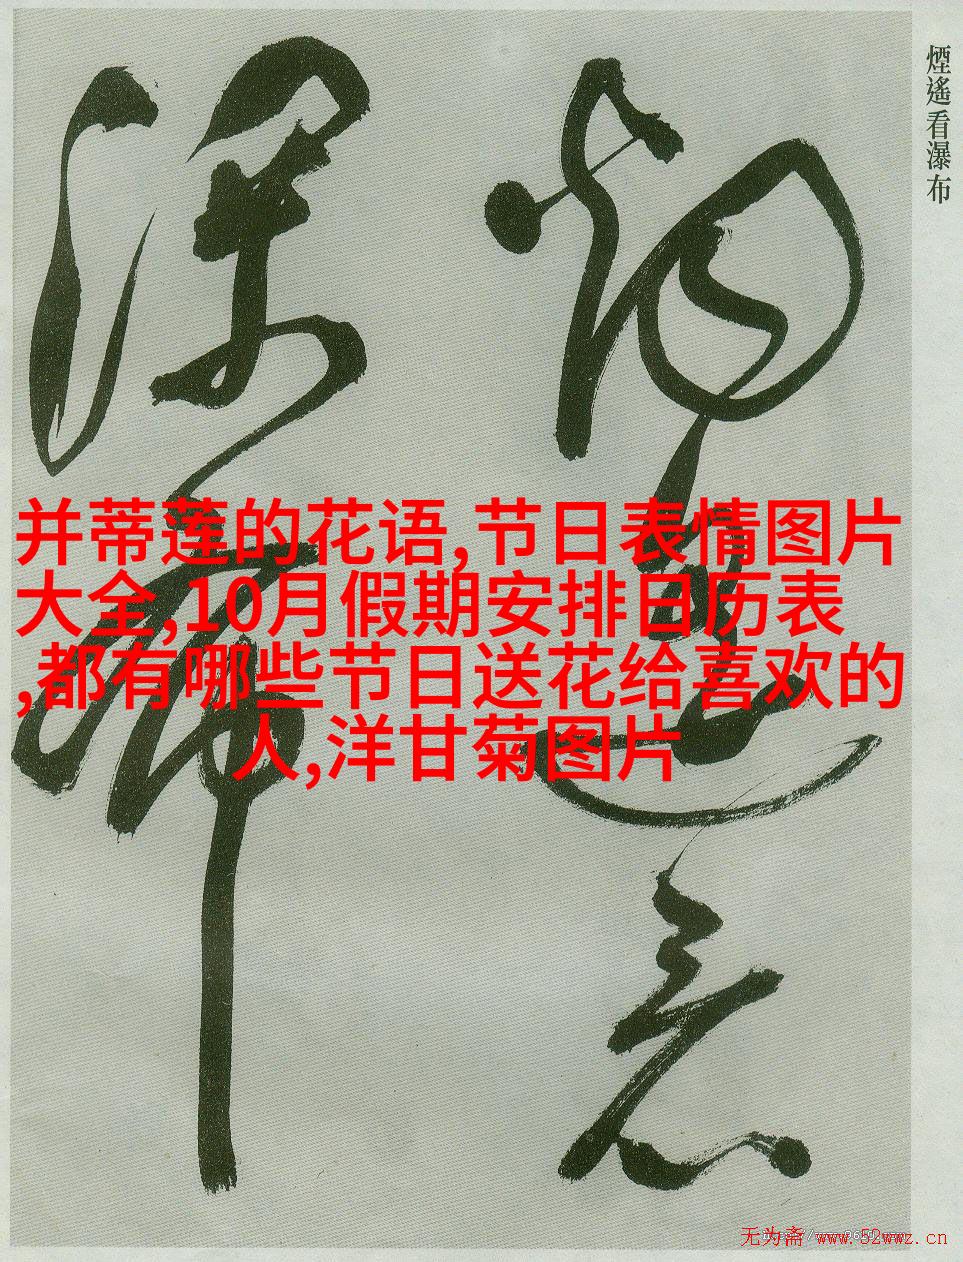 煙遙看瀑布
煙遙看
瀑布
并蒂莲的花语,节日表情图片
大全,10月假期安排日历表
,都有哪些节日送花给喜欢的
人,洋甘菊图片
无为斋 www.52wwz.cn